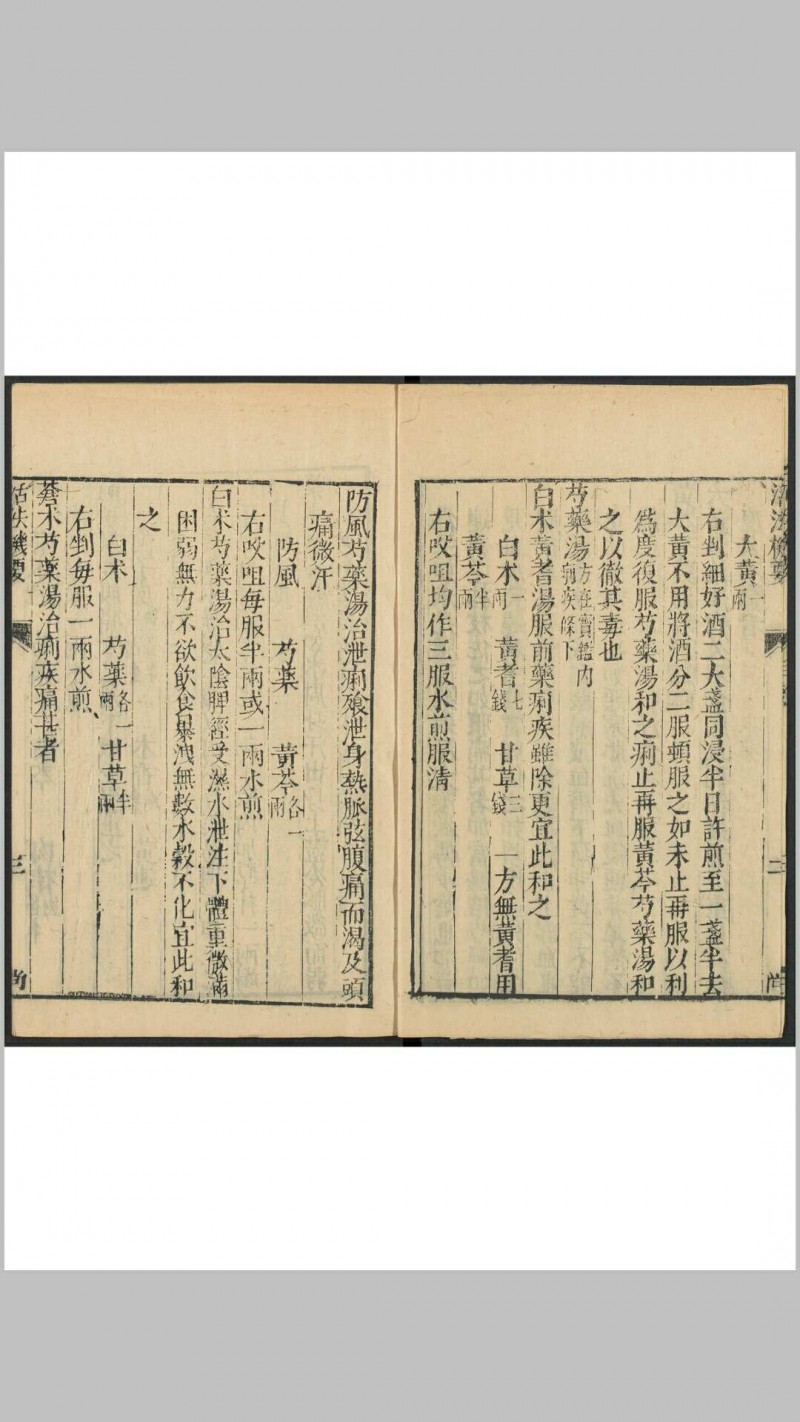 大黃一兩
右剉細好酒二大盞同浸半日許煎至一盞半去
大黃不用將酒分二服頓服之如未止再服以利
爲度復服芍藥湯和之痢止再服黃芩芍藥湯和
之以徹其毒也
芍藥湯方在寳鑑內痢疾條下
白朮黃耆湯服前藥痢疾雖除更宜此和之
白朮一兩 黃耆七錢 甘草三錢 一方無黃耆用
黃芩半兩
右㕮咀均作三服水煎服清
防風芍藥湯治泄痢飱泄身熱脈弦腹痛而渴及頭
痛微汗
防風 芍藥 黃芩各一兩
右㕮咀每服半兩或一兩水煎
白朮芍藥湯治太陰脾經受濕水泄注下體重微滿
困弱無力不欲飲食暴泄無數水穀不化宜此和
之
白朮 芍藥各一兩 甘草半兩
右剉每服一兩水煎
蒼朮芍藥湯治痢疾痛甚者
活法機要 三